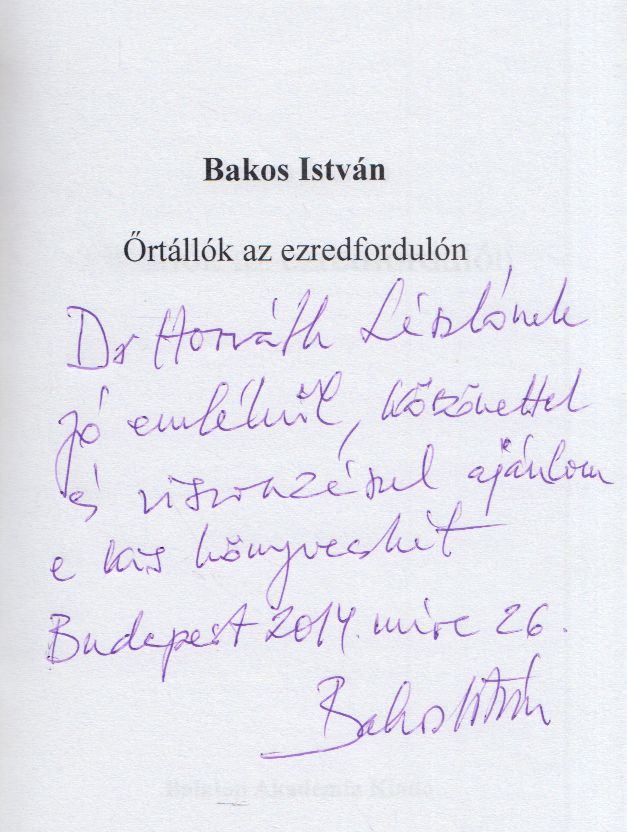 Bakos István
Őrtállók az ezredfordulón
Dr Horváth Lászlónak
jó emlékül, köszönettel
és viszonzásul ajánlom
e kis könyvecskét
Budapest 2014. márc 26.
Bakos István
Balaton Akadémia Kiadó